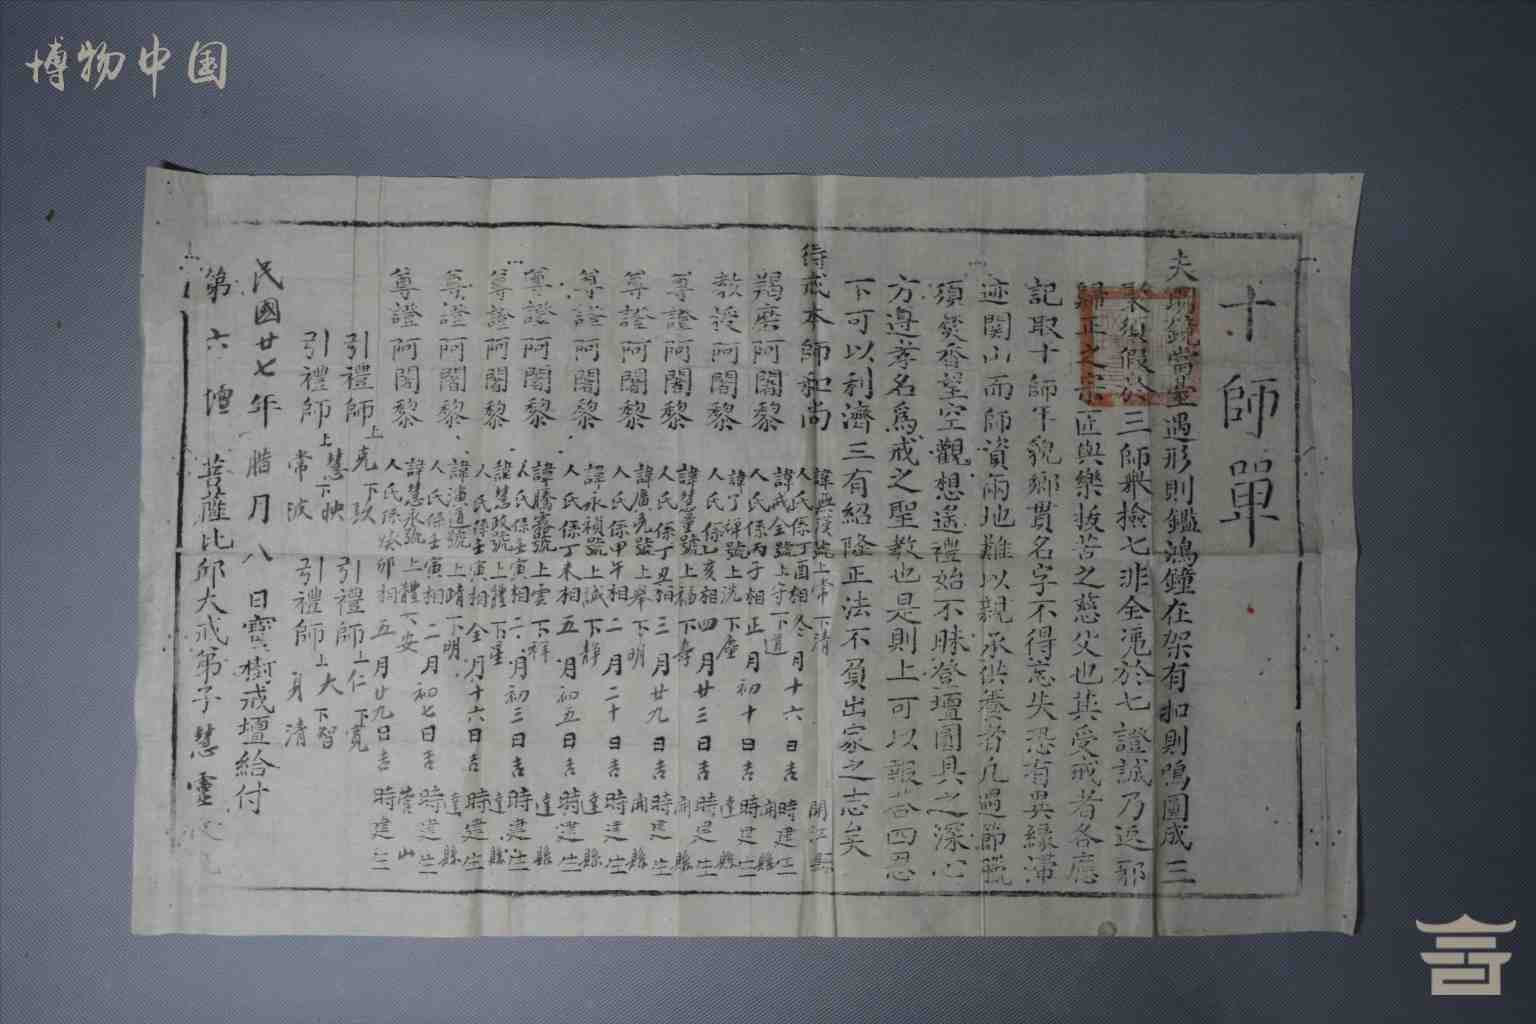 博物中国
十師單
夫明鏡當臺遇形則鑑鴻鐘在架有扣則鳴圓成三
聚須假於三師衆撿七非全凴於七證誠乃返邪
歸正之宗匠與樂拔苦之慈父也其受戒者各應
記取十師年貌鄉貫名字不得忘失恐有異緣滯
迹関山而師資兩地難以親承供養者凡遇節臘
須焚香望空觀想遙禮始不昧登壇圓具之深心
方遵孝名為戒之聖教也是則上可以報答四恩
下可以利濟三有紹隆正法不負出家之志矣
得戒本師和尚 上常下清 人氏係丁酉相冬月十六日吉時建生 開江縣
羯磨阿闍黎 諱戒全號上守下道 人氏係丙子相正月初十日吉時建生 開縣
教授阿闍黎 諱了禪號上洗下塵 人氏係乙亥相四月廿三日吉時建生 達縣
尊證阿闍黎 諱慧量號上福下壽 人氏係丁丑相三月廿九日吉時建生 開縣
尊證阿闍黎 諱廣亮號上舉下明 人氏係甲午相二月二十日吉時建生 開縣
尊證阿闍黎 諱永禎號上誠下靜 人氏係丁未相五月初五日吉時建生 達縣
尊證阿闍黎 諱騰霧號上雲下祥 人氏係壬寅相二月初三日吉時建生 達縣
尊證阿闍黎 諱慧政號上體下 人氏係壬寅相全月十六日吉時建生 達縣
尊證阿闍黎 諱演道號上晴下明 人氏係壬寅相二月初七日吉時建生 達縣
尊證阿闍黎 諱慧永號上體下安 人氏係癸卯相五月廿九日吉時建生 營山
引禮師上克下玖 引禮師上仁下寬
引禮師上慧下映 常波 引禮師上大下智 月清
民國廿七年腊月八日寶樹戒壇給付
第六壇菩薩比邱大戒弟子慧靈